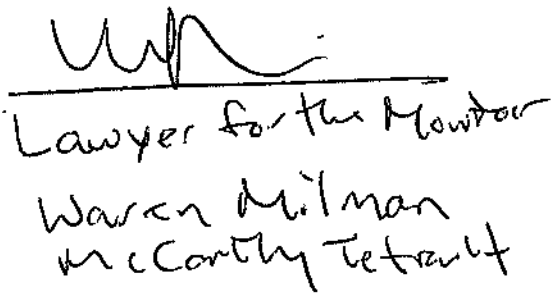 Lawyer for the Monitor
Warren Milman
McCarthy Tetrault